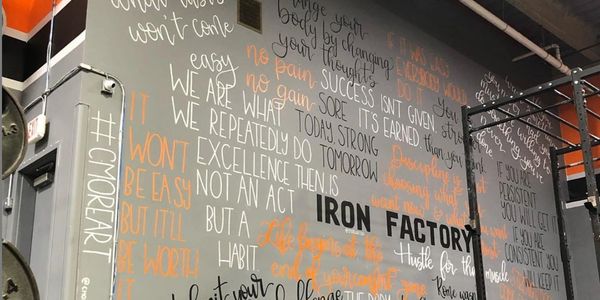 won't come
easy
change your
body by changing
your thoughts
no pain
no gain
IF IT WAS EASY
EVERYBODY WOULD
DO IT
WE ARE WHAT
WE REPEATEDLY DO
EXCELLENCE THEN IS
NOT AN ACT
BUT A
HABIT
SORE
TODAY STRONG
TOMORROW
SUCCESS ISN'T GIVEN.
IT'S EARNED.
You
than you
Discipline is just
choosing what you
want now &
IT
WONT
BE EASY
BUT IT'LL
BE WORTH
IT
#CMOREART
IRON FACTORY
Life begins at the
end of your comfort zone
Hustle for the muscle
IF YOU ARE
PERSISTENT
YOU WILL GET IT
IF YOU ARE
CONSISTENT YOU
WILL KEEP IT
Rome wasn't
your
THE BODY